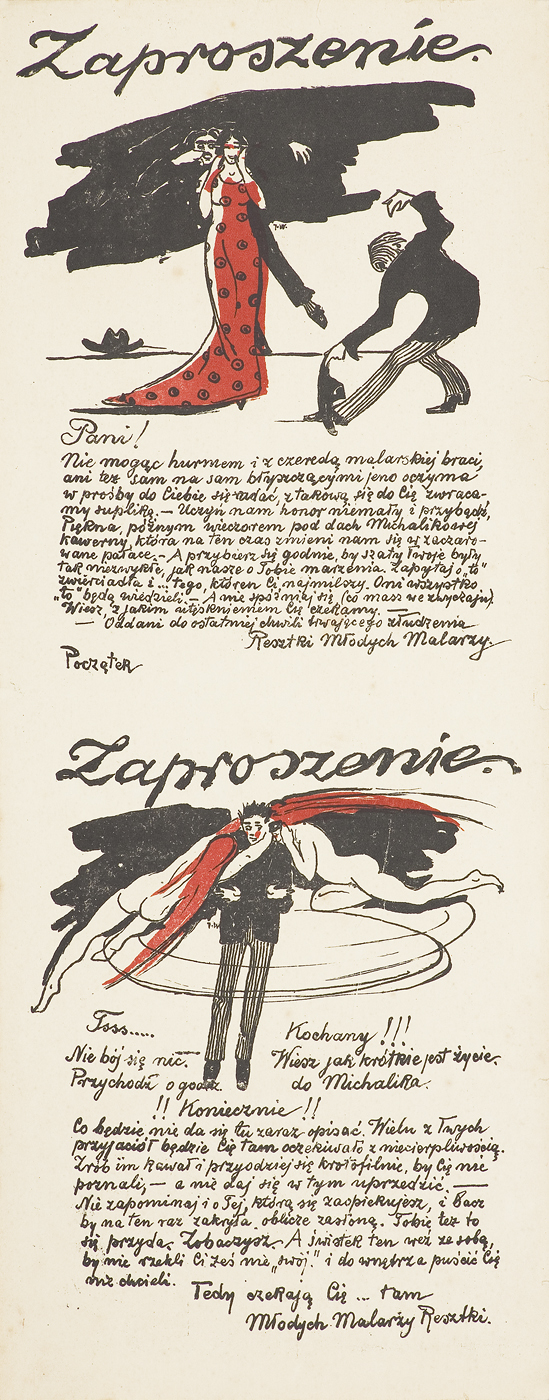 Zaproszenie.
T.W.
Pani!
Nie mogąc hurmem i z czeredą malarskiej braci,
ani też sam na sam błyszczącymi jeno oczyma
w prośby do Ciebie się udać, z takową się do Cię zwraca-
my supliką. — Uczyń nam honor niemały i przybądź,
Piękna, późnym wieczorem pod dach Michalikowej
kawerny, która na ten czas zmieni nam się w zaczaro-
wane pałace. — A przybierz się godnie, by szaty Twoje były
tak niezwykłe, jak nasze o Tobie marzenia. Zapytaj o „to"
zwierciadła i... tego, któren Ci najmilszy. Oni wszystko
„to" będą wiedzieli. — A nie spóźniaj się (co masz we zwyczaju).
Wiesz, z jakim utęsknieniem Cię czekamy. —
— Oddani do ostatniej chwili trwającego złudzenia
Resztki Młodych Malarzy.
Początek
Zaproszenie.
T.W.
Tsss.....
Nie bój się nic.
Przychodź o godz.
Kochany!!!
Wiesz jak krótkie jest życie.
do Michalika.
!! Koniecznie!!
Co będzie nie da się tu zaraz opisać. Wielu z Twych
przyjaciół będzie Cię tam oczekiwało z niecierpliwością.
Zrób im kawał i przyodziej się krotofilnie, by Cię nie
poznali, — a nie daj się w tym uprzedzić. —
Nie zapominaj i o Tej, którą się zaopiekujesz, i bacz
by na ten raz zakryła oblicze zasłoną. Tobie też to
się przyda. Zobaczysz. A świstek ten weź ze sobą,
by nie rzekli Ci żeś nie „swój" i do wnętrza puścić Cię
nie chcieli.
Tedy czekają Cię... tam
Młodych Malarzy Resztki.